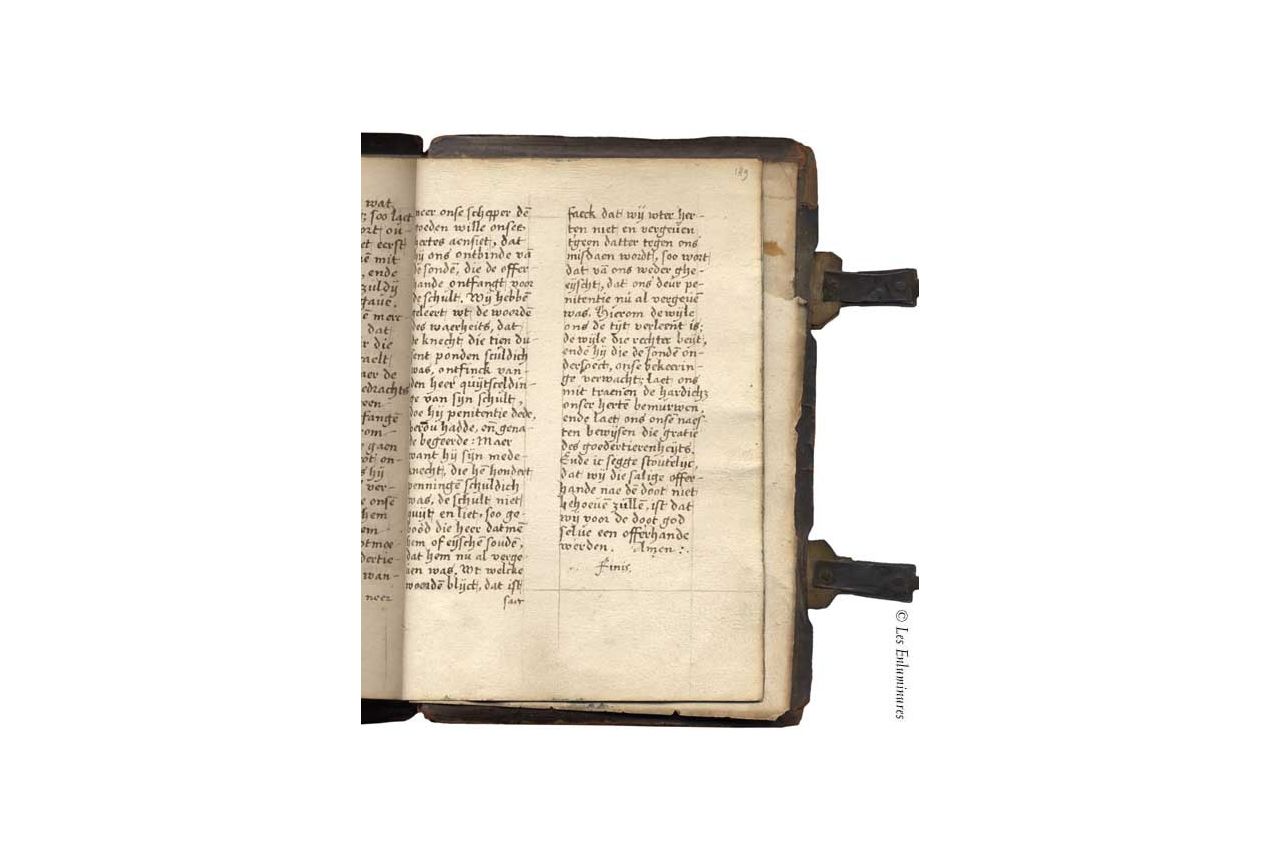 wat
soo laet
ort ou-
et eerst
mit
, ende
zuldÿ
gaue,
mere
dat
r die
raelt
aer de
edrachts
een
fangē
om-
gaen
ot on-
s hÿ
ver-
e onse
hem
em
otmoe
dertie-
wan-
neer
189
neer onse schepper dē
goeden wille onser
hertes aensiet, dat
hÿ ons ontbinde vā
de sondē, die de offer
hande ontfangt voor
de schult. Wÿ hebbē
geleert wt de woordē
des waerheits, dat
de knecht, die tien du-
sent ponden sculdich
was, ontfinck van
den heer quÿtsceldin-
ge van sÿn schult,
doe hÿ penitentie dede,
berou hadde, eñ gena-
de begeerde: Maer
want hÿ sÿn mede-
knecht, die hē hondert
penningē schuldich
was, de schult niet
quÿt en liet, soo ge-
boōd die heer datmē
hem of eÿschē soude,
dat hem nu al verge-
uen was. Wt welcke
woordē blÿct, dat ist
saec
saeck dat wÿ wter her-
ten niet en vergeuen
tgeon datter tegen ons
misdaen wordt, soo wort
dat vā ons weder ghe-
eÿscht, dat ons deur pe-
nitentie nu al vergeuē
was. Hierom de wÿle
ons de tÿt verleent is;
de wÿle die rechter beÿt,
ende hÿ die de sondē on-
dersoect, onse bekeerin-
ge verwacht; laet ons
mit traenē de hardich3
onser hertē bemurwen,
ende laet ons onsē naes-
ten bewÿsen die gratie
des goedertierenheÿts.
Ende ic segge stoutelÿc,
dat wÿ die salige offer-
hande nae dē doot niet
behoeuē zullē, ist dat
wÿ voor de doot god
selue een offerhande
werden. Amen :.
Finis.
© Les Enluminures